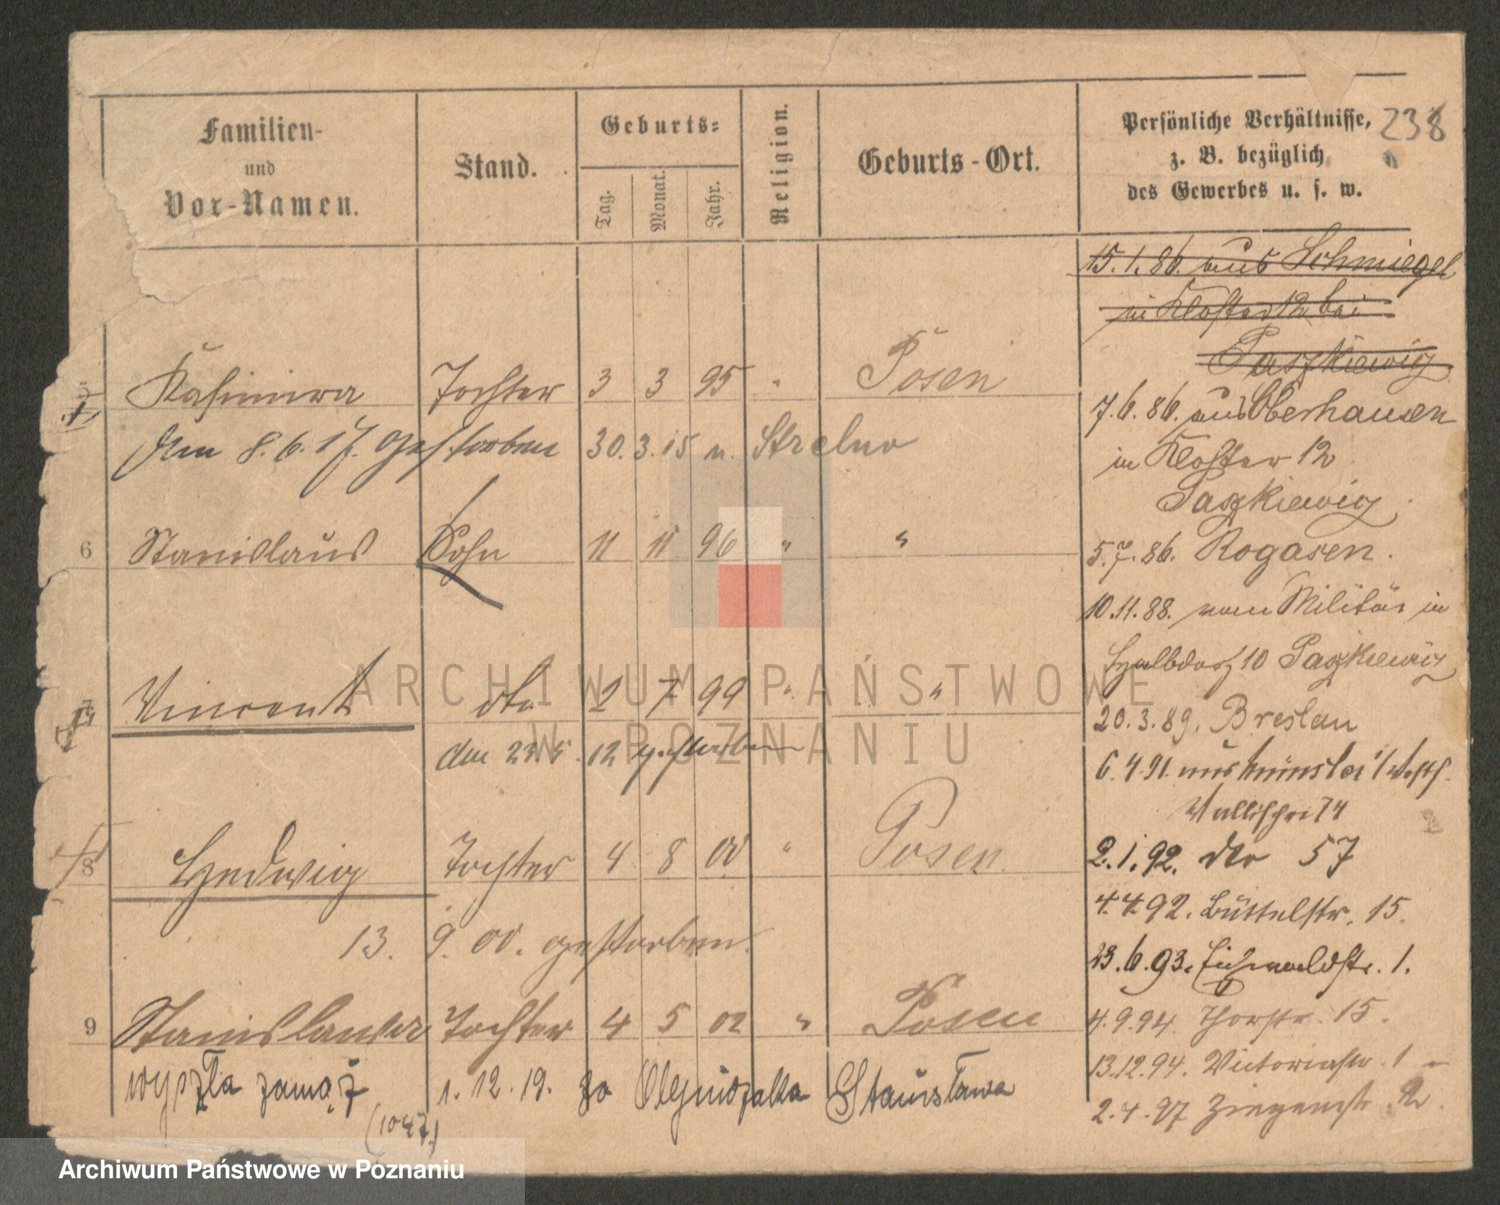 Familien-
und
Vor-Namen.
Stand.
Geburts-
Tag.
Monat.
Jahr.
Religion.
Geburts-Ort.
Persönliche Verhältnisse,
z. B. bezüglich
des Gewerbes u. s. w.
238
15.1.86. aus Schmiegel
in Kloster 12 bei
Paszkiewicz
5 Kasimira Tochter 3 3 95 " Posen
Am 8.6.17. gestorben 30.3.15 n. Strelno
6 Stanislaus Sohn 11 11 96 " "
7 Vincent dto 2 7 99 " "
den 23.5.12 gestorben
8 Hedwig Tochter 4 8 00 " Posen
13. 9. 00. gestorben
9 Stanislawa Tochter 4 5 02 " Posen
wyszła zamąż 1.12.19. za Olejniczaka Stanisława
(1047.)
7.6.86. aus Oberhausen
in Kloster 12
Paszkiewicz
5.7.86. Rogasen.
10.11.88. vom Militär in
Halbdorf 10 Paszkiewicz
20.3.89. Breslau
6.4.91. aus Münster i/Westf.
Wallischei 74
2.1.92. dto 57
4.4.92. Büttelstr. 15.
23.6.93. Eichwaldstr. 1.
4.9.94. Thorstr. 15.
13.12.94. Victoriastr. 1
2.4.97 Ziegenstr. 2
ARCHIWUM PAŃSTWOWE
W POZNANIU
Archiwum Państwowe w Poznaniu